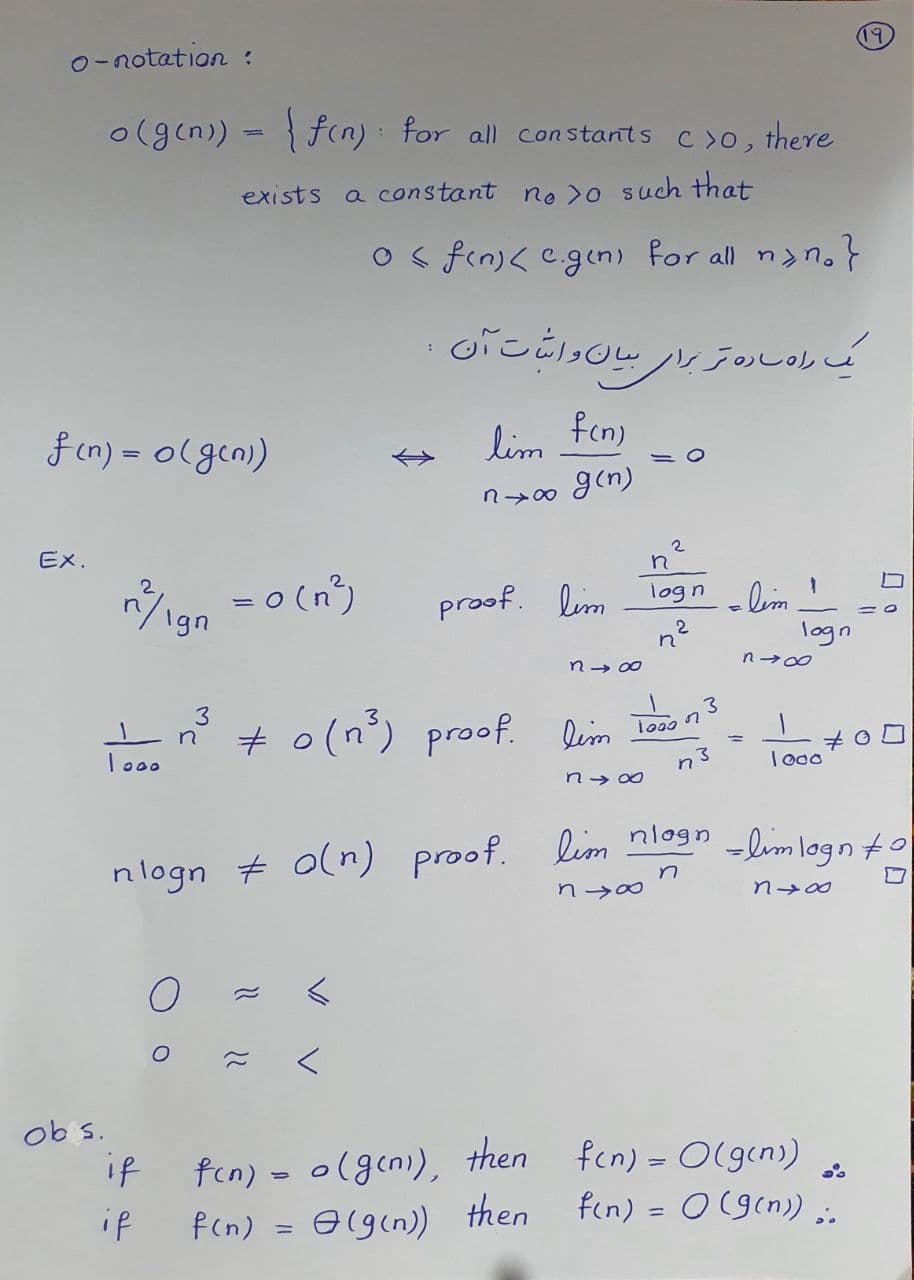 19
o-notation :
o(g(n)) = { f(n) : for all constants c > 0, there
exists a constant n₀ > 0 such that
0 ⩽ f(n) < c.g(n) for all n ⩾ n₀ }
یک راه ساده تر برای بیان و اثبات آن :
f(n) = o(g(n)) ↔ lim n→∞ f(n)/g(n) = 0
Ex.
n²/lgn = o(n²) proof. lim n→∞ (n²/logn)/n² = lim n→∞ 1/logn = 0 □
1/1000 n³ ≠ o(n³) proof. lim n→∞ (1/1000 n³)/n³ = 1/1000 ≠ 0 □
nlogn ≠ o(n) proof. lim n→∞ nlogn/n = lim n→∞ logn ≠ 0 □
O ≈ ⩽
o ≈ <
obs.
if f(n) = o(g(n)), then f(n) = O(g(n)) ஃ
if f(n) = Θ(g(n)) then f(n) = O(g(n)) ஃ